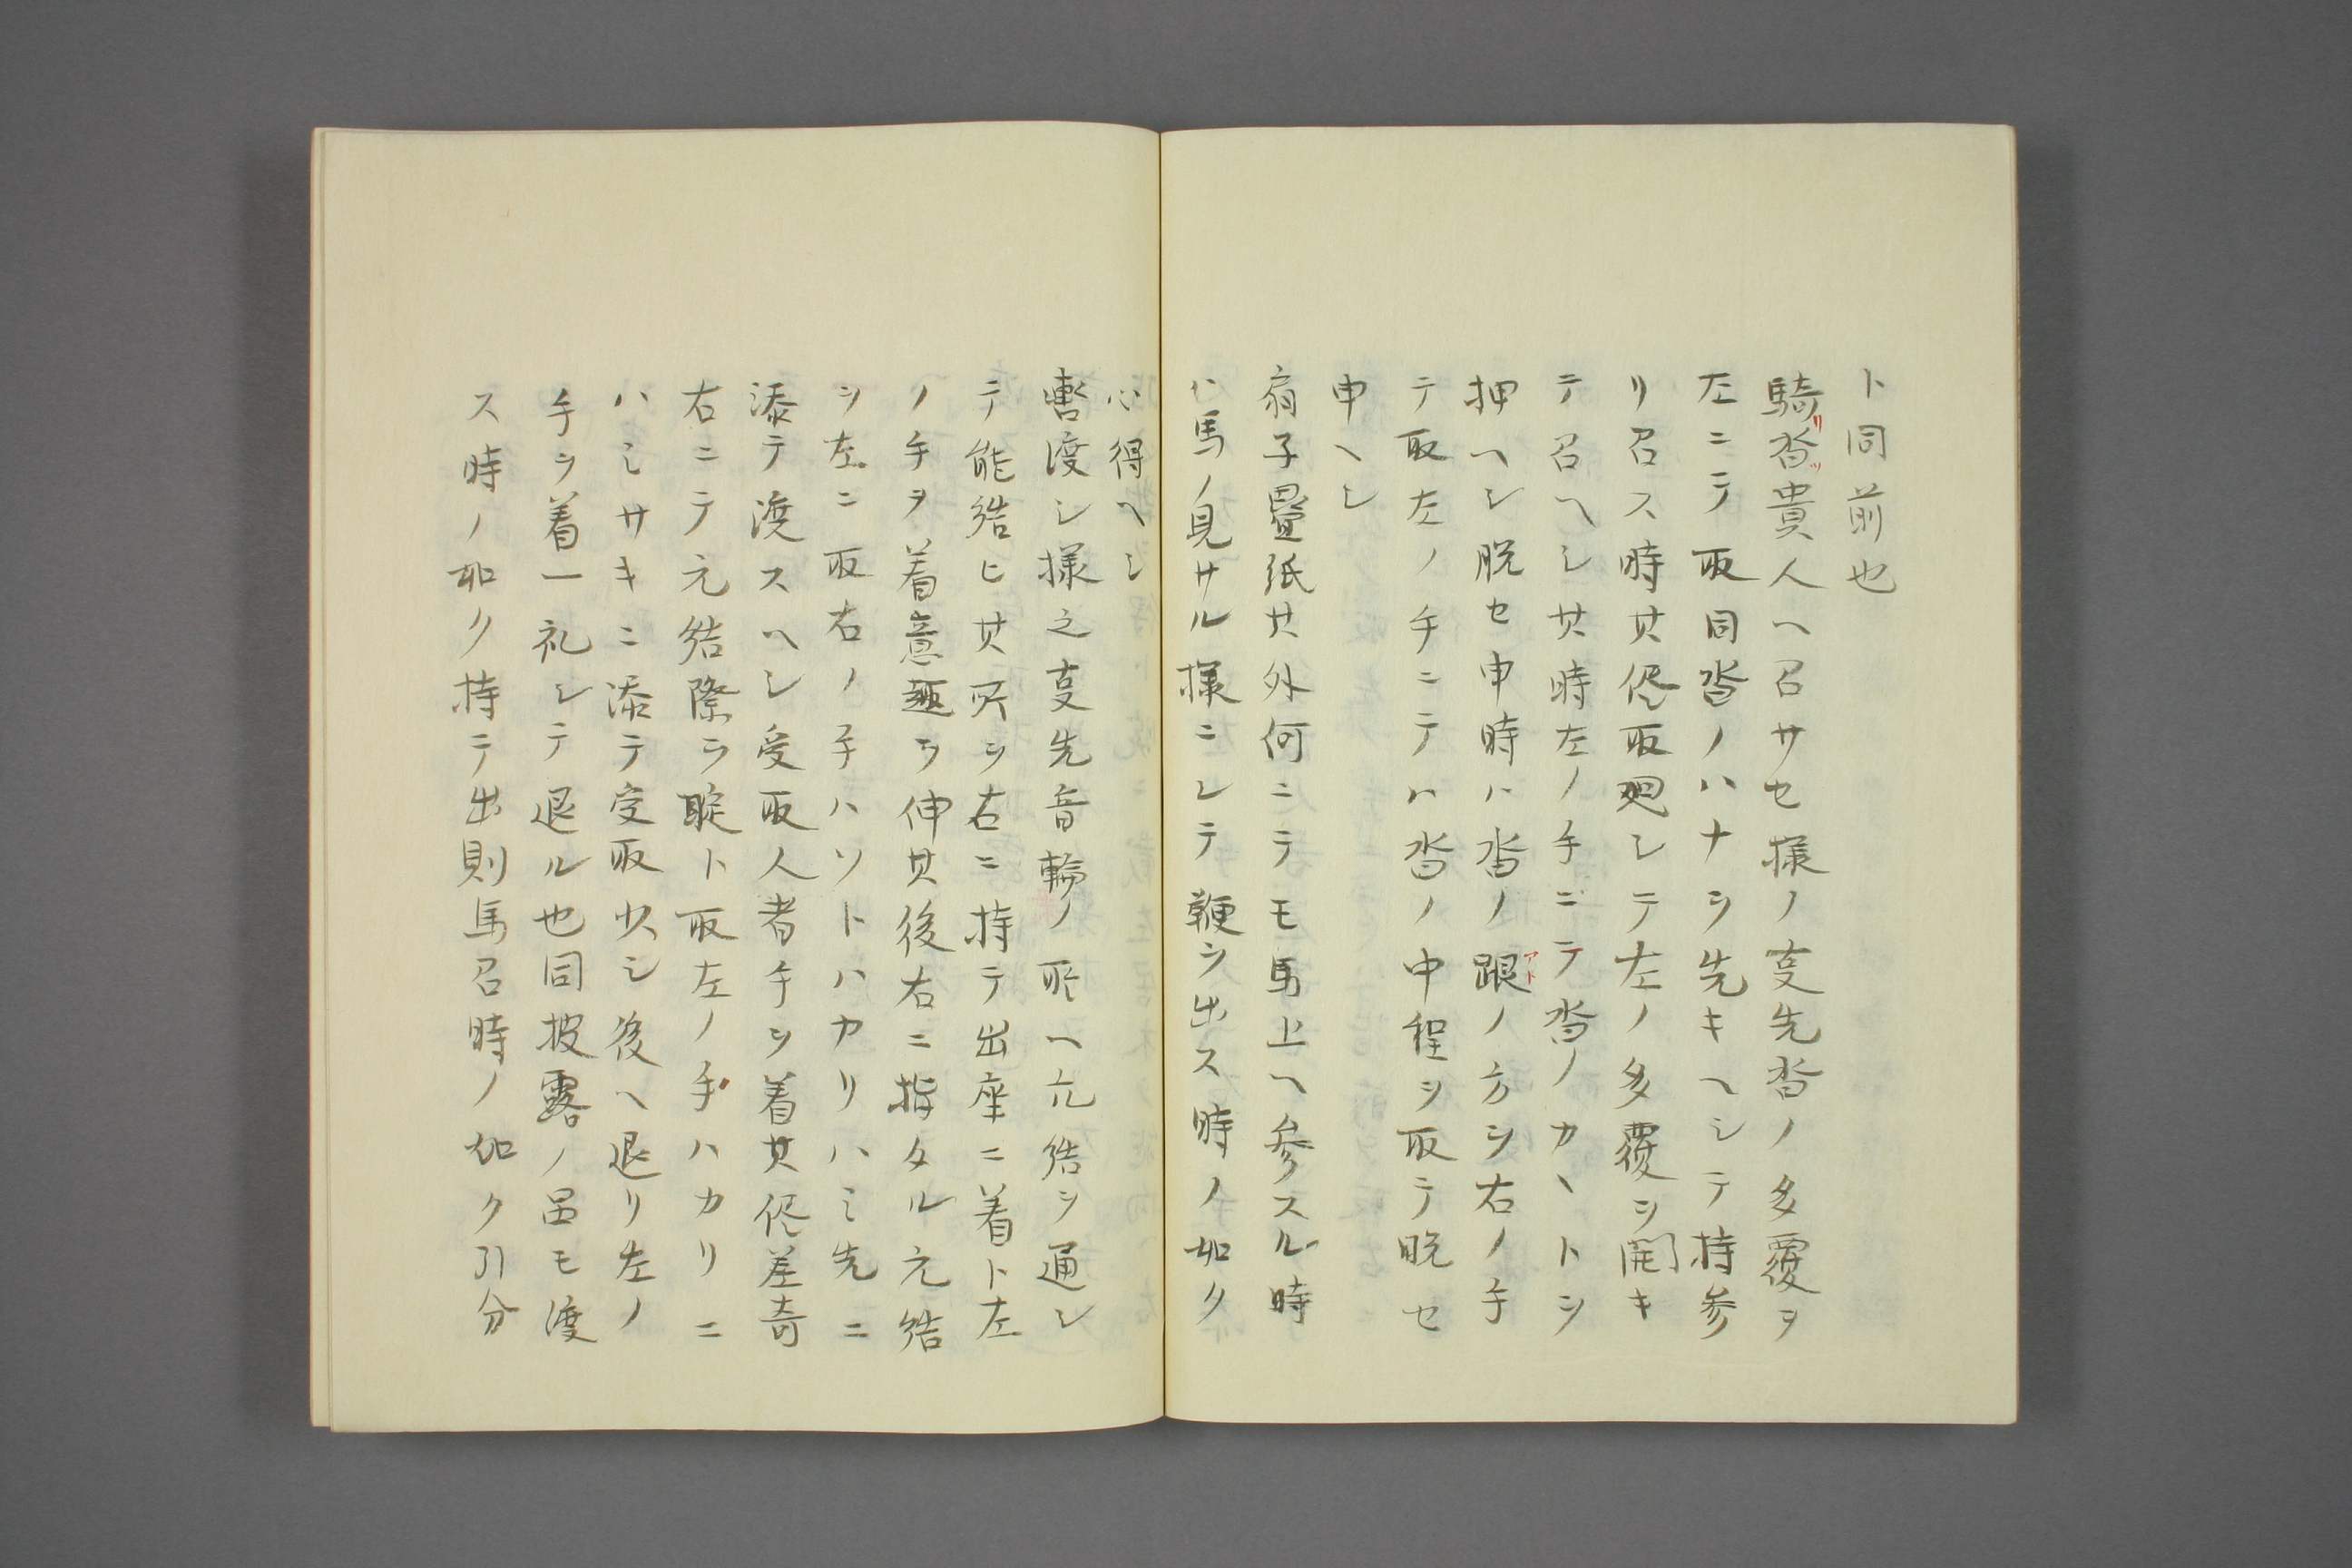 ト同前也
騎リ沓ツ貴人ヘ召サセ様ノ㕝先沓ノ多覆ヲ
左ニテ取同沓ノハナヲ先キヘシテ持参
リ召ス時其侭取廻シテ左ノ多覆ヲ開キ
テ召ヘシ其時左ノ手ニテ沓ノカヽトヲ
押ヘシ脱セ申時ハ沓ノ跟アトノ方ヲ右ノ手
テ取左ノ手ニテハ沓ノ中程ヲ取テ脱セ
申ヘシ
扇子疊紙其外何ニテモ馬上ヘ参スル時
ハ馬ノ見サル様ニシテ鞭ヲ出ス時ノ如ク
心得ヘシ
轡渡シ様之㕝先音輪ノ所ヘ元結ヲ通シ
テ能結ヒ其所ヲ右ニ持テ出座ニ着ト左
ノ手ヲ着意趣ヲ伸其後右ニ指タル元結
ヲ左ニ取右ノ手ハソトハカリハミ先ニ
添テ渡スヘシ受取人者手ヲ着其侭差寄
右ニテ元結際ヲ聢ト取左ノ手ハカリニ
ハミサキニ添テ受取少シ後ヘ退リ左ノ
手ヲ着一礼シテ退ル也同披露ノ品モ渡
ス時ノ如ク持テ出則馬召時ノ如ク引分